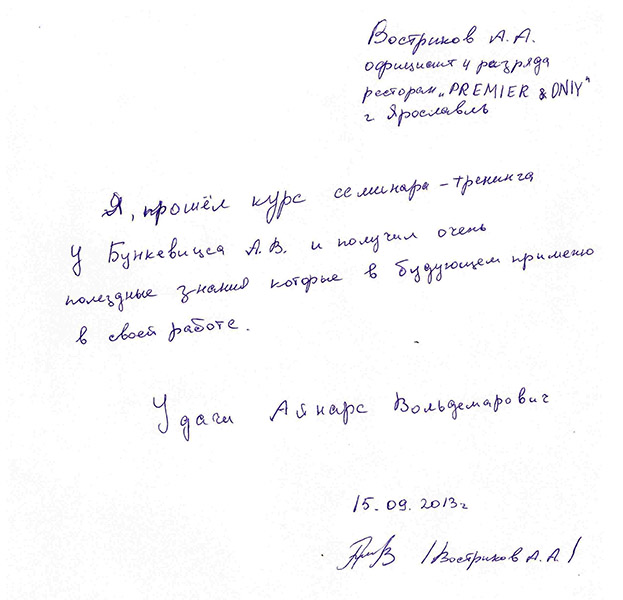 Востриков А.А.
официант 4 разряда
ресторан „PREMIER & ONLY"
г Ярославль
Я, прошёл курс семинара-тренинга
у Бункевицса А.В. и получил очень
полездные знания которые в будующем применю
в своей работе.
Удачи Айнарс Вольдемарович
15.09.2013г
/Востриков А.А./